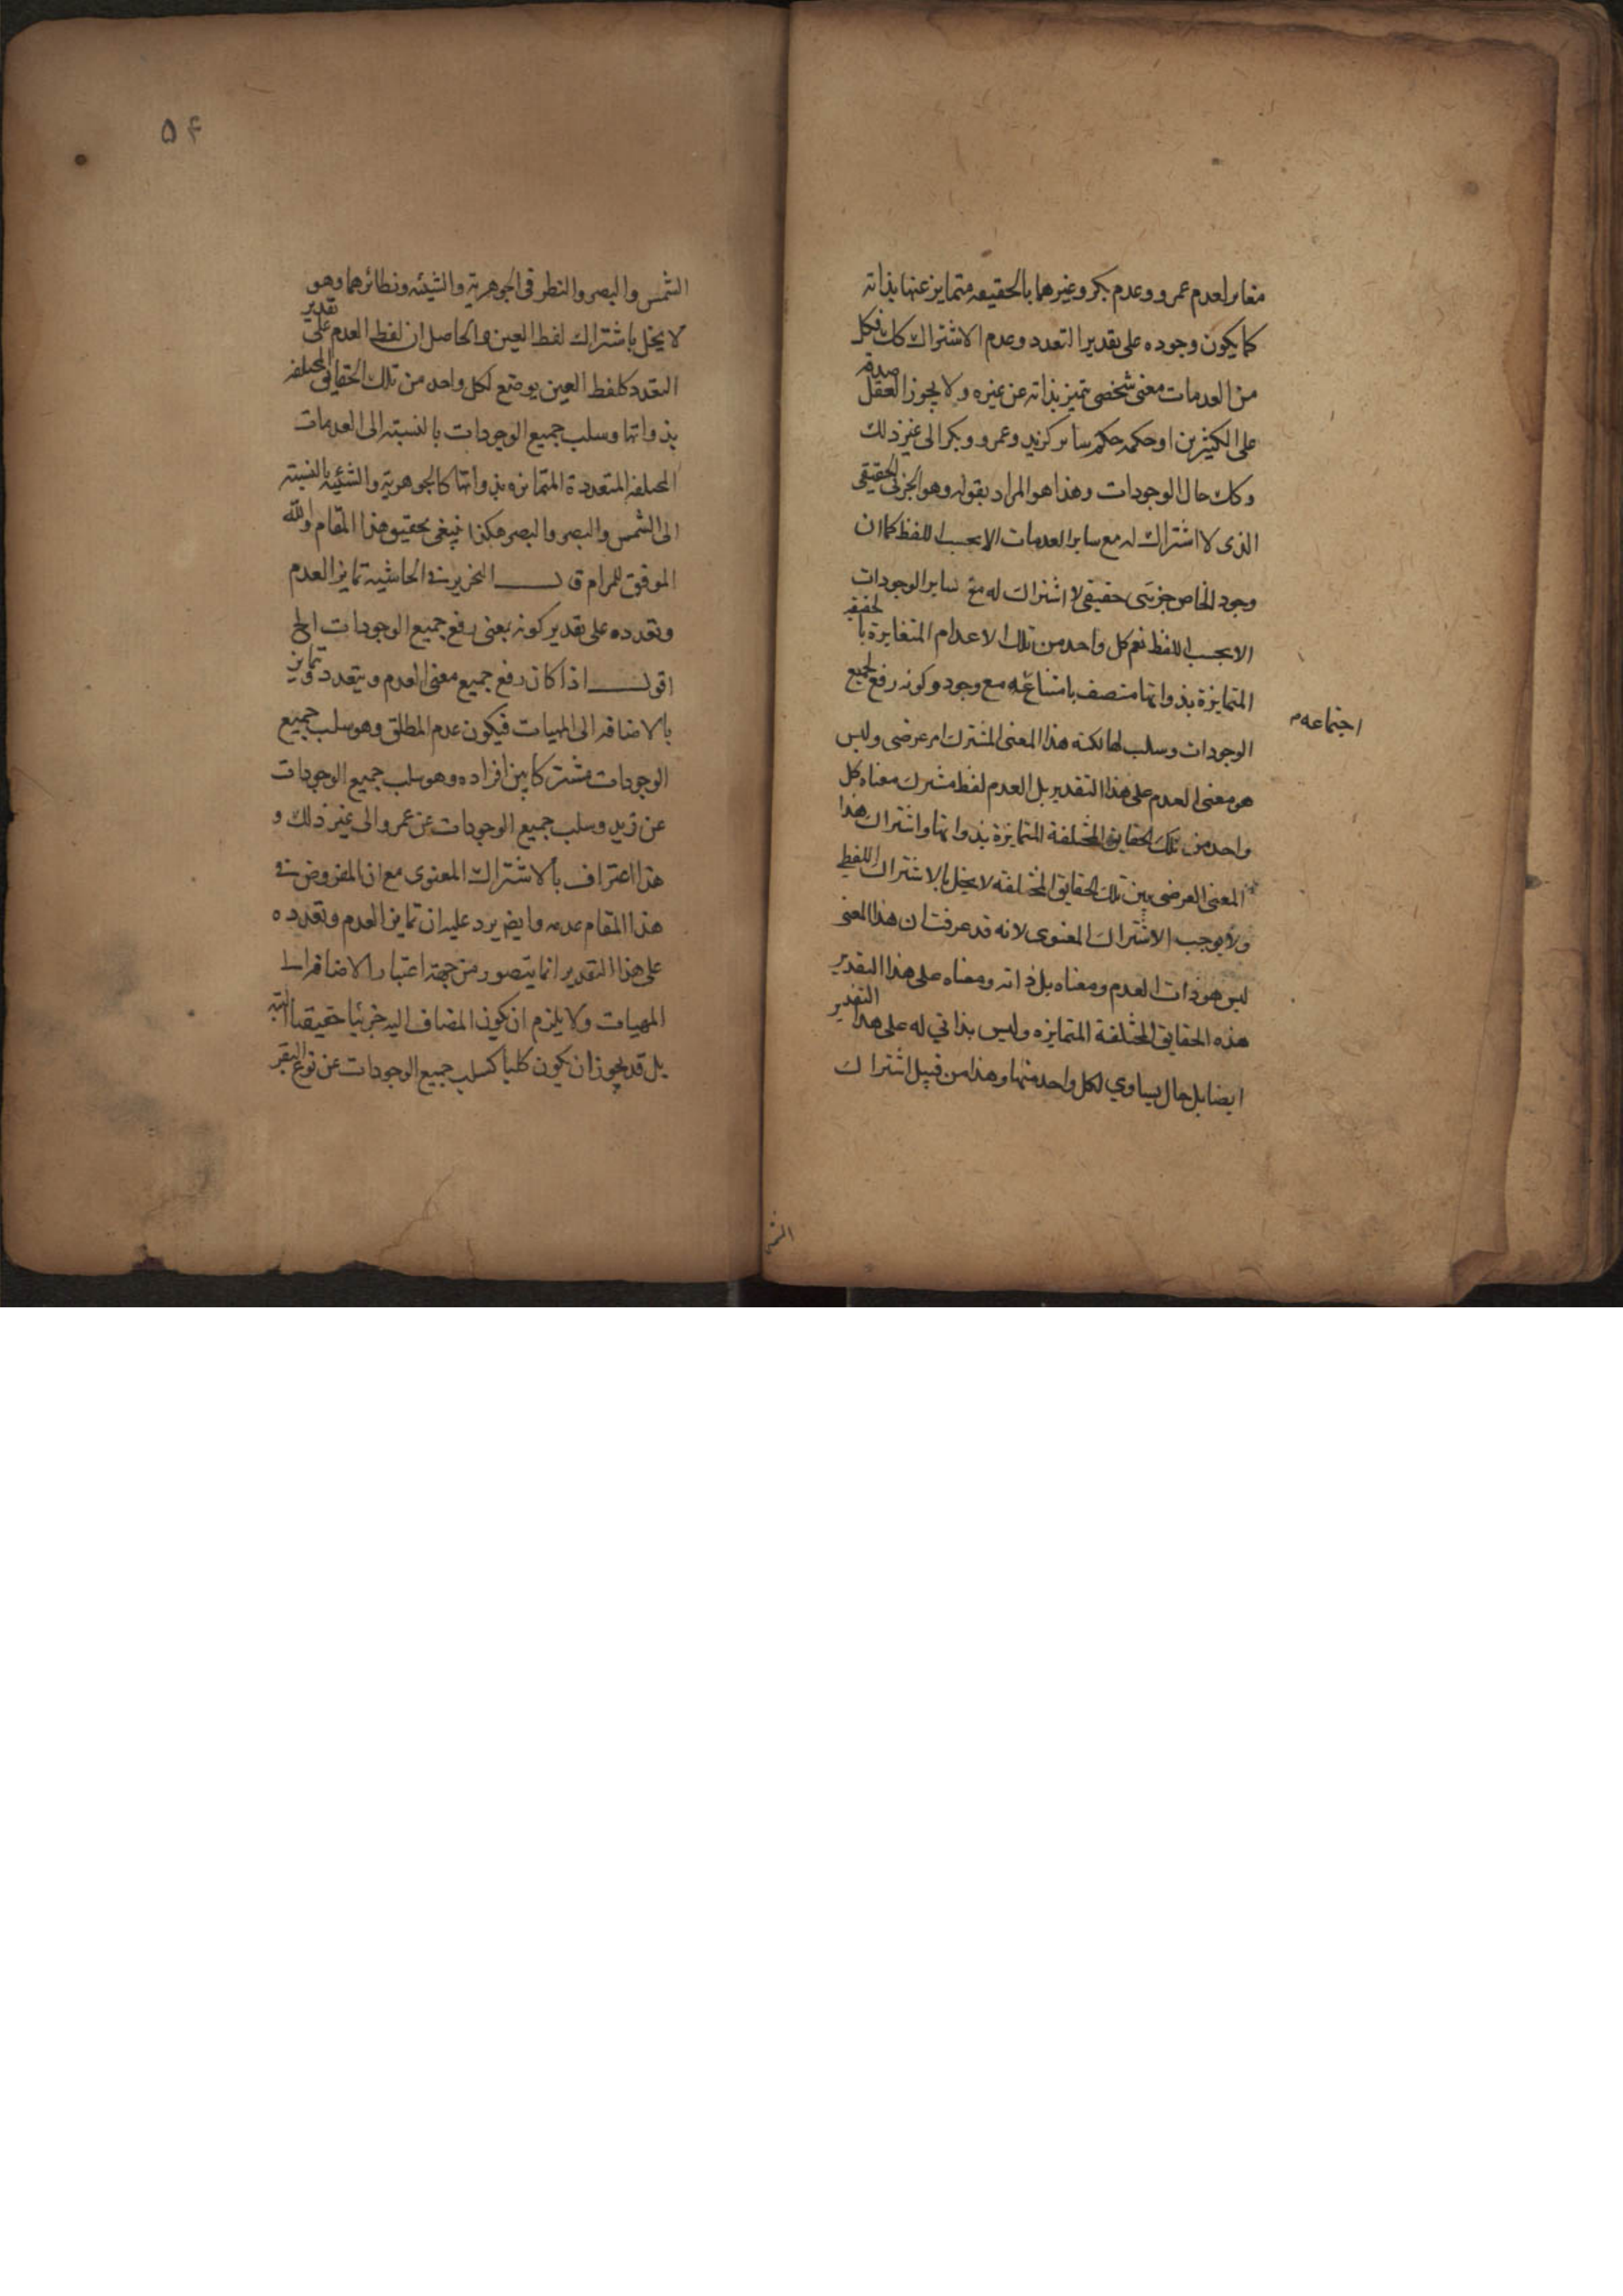 مغاير لعدم عمرو وعدم بكر وغيرهما بالحقيقه متمايز عنها بذاته
كما يكون وجوده على تقدير التعدد وعدم الاشتراك كك فكل
من العدمات معنى شخصى يتميز بذاته عن غيره ولا يجوز العقل صدقه
على الكثيرين او حكمه حكم ساير كزيد وعمرو وبكر الى غير ذلك
وكك حال الوجودات وهذا هو المراد بقوله وهو الجزئى الحقيقى
الذى لا اشتراك له مع ساير العدمات الا بحسب اللفظ كما ان
وجود الخاص جزئى حقيقى لا اشتراك له مع ساير الوجودات
الا بحسب اللفظ نعم كل واحد من تلك الاعدام المتغايرة بالحقيقه
المتمايزة بذواتها متصف بامتناع مع وجود وكونه رفع لجميع
اجتماعه
الوجودات وسلب لها لكنه هذا المعنى المشترك امر عرضى وليس
هو معنى العدم على هذا التقدير بل العدم لفظ مشترك معناه كل
واحد من تلك الحقايق المختلفة المتمايزة بذواتها واشتراك هذا
المعنى العرضى بين تلك الحقايق المختلفه لا يخل بالاشتراك اللفظى
ولا يوجب الاشتراك المعنوى لانه قد عرفت ان هذا المعنى
ليس هو ذات العدم ومعناه بل ذاته ومعناه على هذا التقدير
هذه الحقايق المختلفة المتمايزه وليس بذاتي له على هذا التقدير
ايضا بل حال يساوي لكل واحد منها وهذا من قبيل اشتراك
الشمس
۵۴
الشمس والبصر والنظر فى الجوهرية والشيئه ونظائرهما وهو
لا يخل باشتراك لفظ العين والحاصل ان لفظ العدم على تقدير
التعدد كلفظ العين يوضع لكل واحد من تلك الحقائق المختلفه
بذواتها وسلب جميع الوجودات بالنسبته الى العدمات
المختلفه المتعددة المتمايزه بذواتها كالجوهرية والشئيه بالنسبته
الى الشمس والبصر والبصر هكذا ينبغى تحقيق هذا المقام والله
الموفق للمرام قال النحرير فى الحاشية تمايز العدم
وتعدده على تقدير كونه بمعنى رفع جميع الوجودات الخ
اقول اذا كان رفع جميع معنى العدم ويتعدد وتمايز
بالاضافه الى المهيات فيكون عدم المطلق وهو سلب جميع
الوجودات مشتركا بين افراده وهو سلب جميع الوجودات
عن زيد وسلب جميع الوجودات عن عمرو الى غير ذلك و
هذا اعتراف بالاشتراك المعنوى مع ان المفروض فى
هذا المقام عدمه وايضا يرد عليه ان تمايز العدم وتعدده
على هذا التقدير انما يتصور من جهة اعتبار الاضافه الى
المهيات ولا يلزم ان يكون المضاف اليه جزئيا حقيقيا البته
بل قد يجوز ان يكون كليا كسلب جميع الوجودات عن نوع البقر